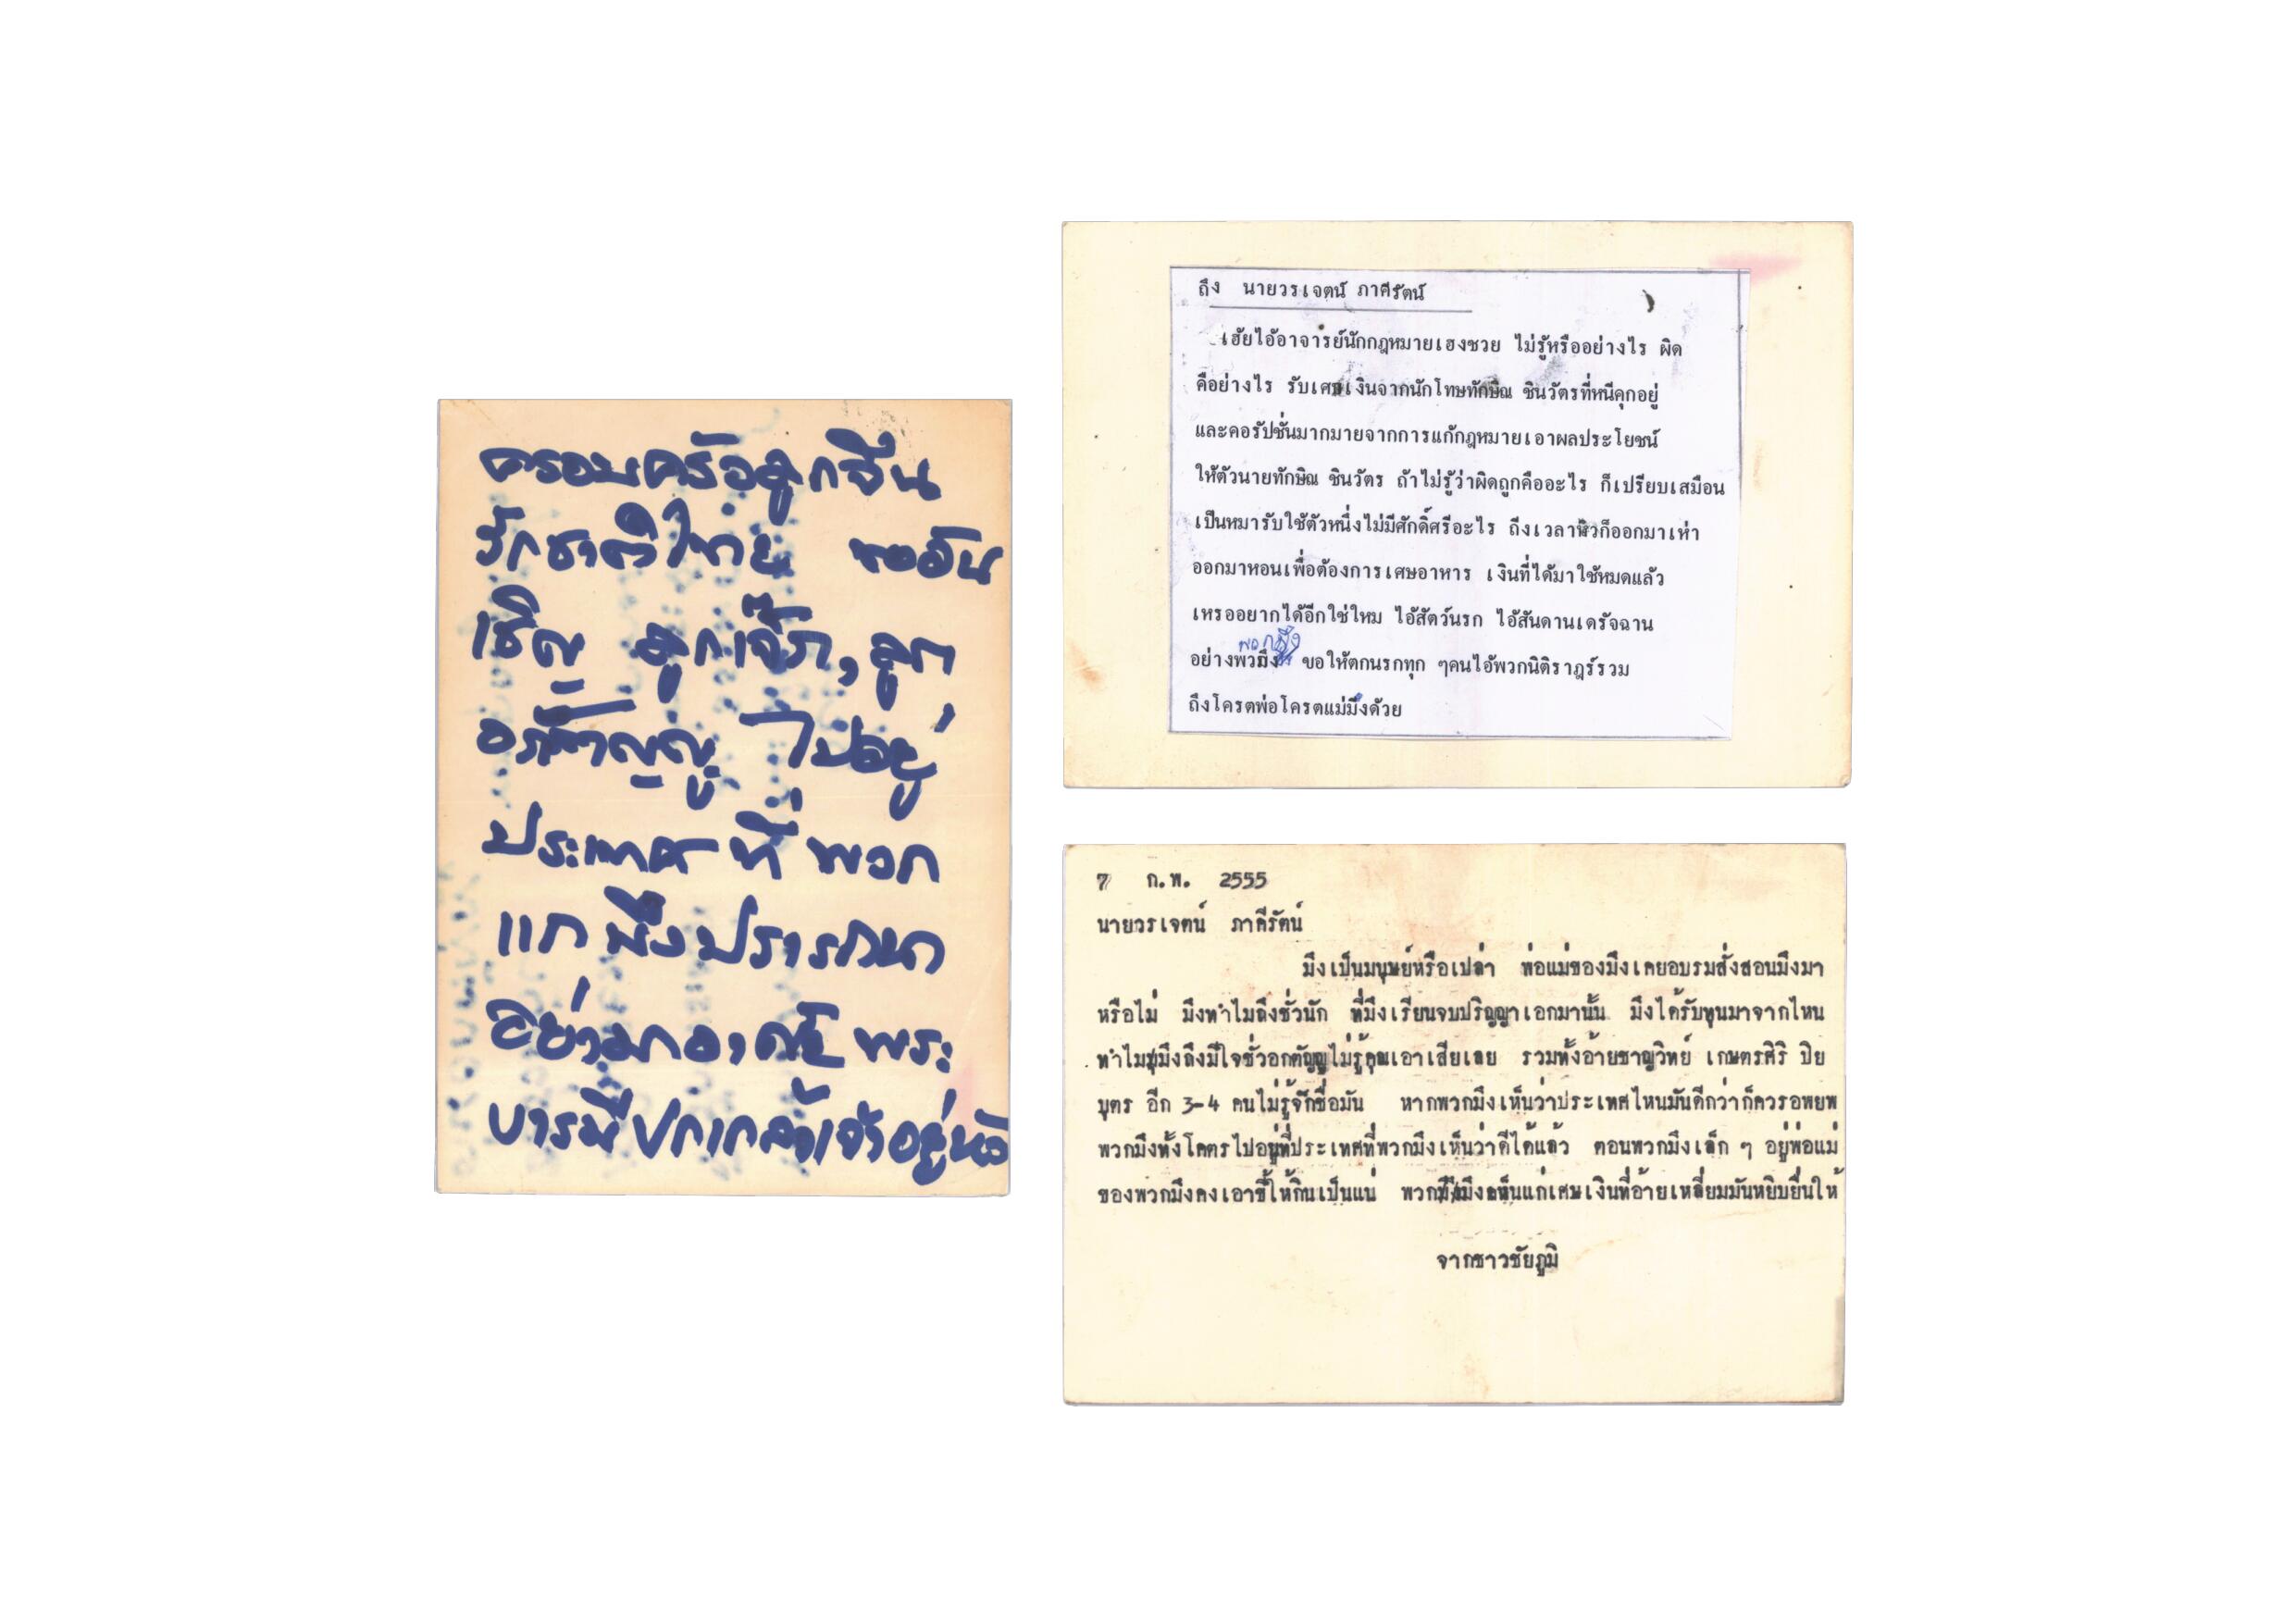 ครอบครัวลูกจีน
รักชาติไทย ขออัน
เชิญ ลูกเจ๊ก, ลูก
อกตัญญู ไปอยู่
ประเทศที่พวก
แกพึงปรารถนา
อย่ามาอาศัยพระ
บารมีปกเกล้าเจ้าอยู่หัว
ถึง นายวรเจตน์ ภาคีรัตน์
เฮ้ยไอ้อาจารย์นักกฎหมายเฮงซวย ไม่รู้หรืออย่างไร ผิด
คืออย่างไร รับเศษเงินจากนักโทษทักษิณ ชินวัตรที่หนีคุกอยู่
และคอรัปชั่นมากมายจากการแก้กฎหมายเอาผลประโยชน์
ให้ตัวนายทักษิณ ชินวัตร ถ้าไม่รู้ว่าผิดถูกคืออะไร ก็เปรียบเสมือน
เป็นหมารับใช้ตัวหนึ่งไม่มีศักดิ์ศรีอะไร ถึงเวลาหิวก็ออกมาเห่า
ออกมาหอนเพื่อต้องการเศษอาหาร เงินที่ได้มาใช้หมดแล้ว
เหรออยากได้อีกใช่ใหม ไอ้สัตว์นรก ไอ้สันดานเดรัจฉาน
พวกมึง
อย่างพวมึง ขอให้ตกนรกทุก ๆคนไอ้พวกนิติราฎร์รวม
ถึงโครตพ่อโครตแม่มึงด้วย
7 ก.พ. 2555
นายวรเจตน์ ภาคีรัตน์
มึงเป็นมนุษย์หรือเปล่า พ่อแม่ของมึงเคยอบรมสั่งสอนมึงมา
หรือไม่ มึงทำไมถึงชั่วนัก ที่มึงเรียนจบปริญญาเอกมานั้น มึงได้รับทุนมาจากไหน
ทำไมมึงถึงมีใจชั่วอกตัญญูไม่รู้คุณเอาเสียเลย รวมทั้งอ้ายชาญวิทย์ เกษตรศิริ ปิย
บุตร อีก 3-4 คนไม่รู้จักชื่อมัน หากพวกมึงเห็นว่าประเทศไหนมันดีกว่าก็ควรอพยพ
พวกมึงทั้งโคตรไปอยู่ที่ประเทศที่พวกมึงเห็นว่าดีได้แล้ว ตอนพวกมึงเล็ก ๆ อยู่พ่อแม่
ของพวกมึงคงเอาขี้ให้กินเป็นแน่ พวกมึงเห็นแก่เศษเงินที่อ้ายเหลี่ยมมันหยิบยื่นให้
จากชาวชัยภูมิ